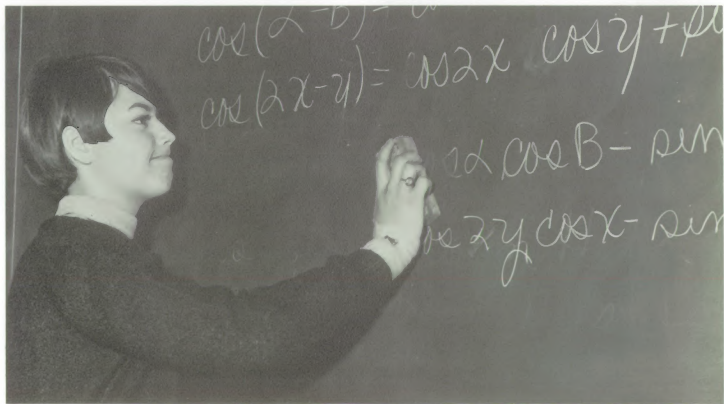 cos(α-B)=
cos(2x-y)= cos2x cosy+
cosα cosB- sin
cos2y cosx- sin